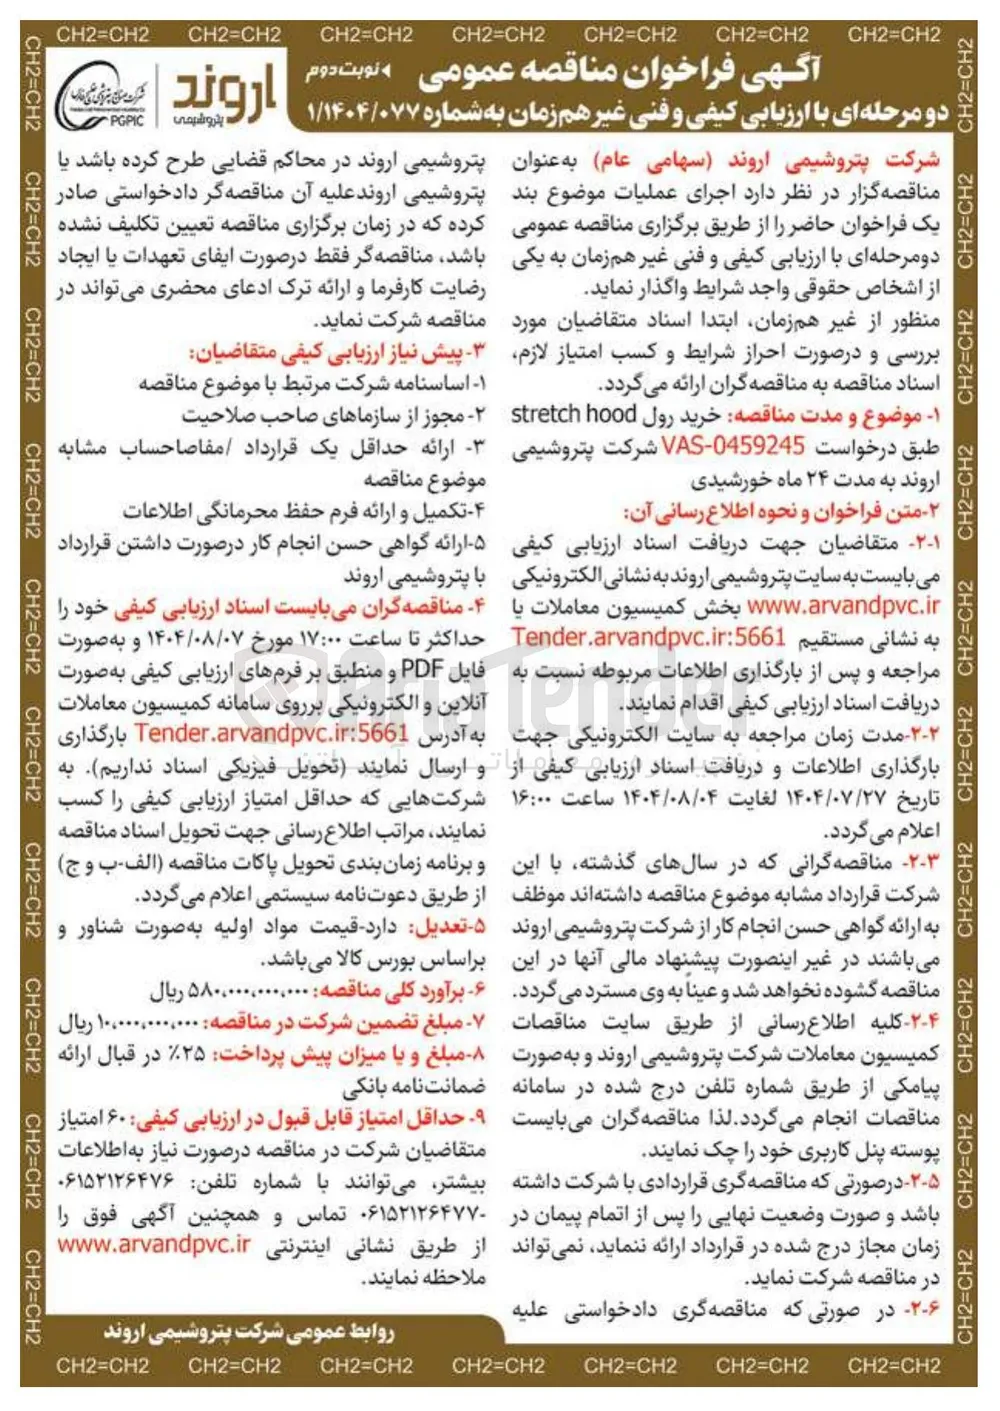 CH2=CH2 CH2=CH2 CH2=CH2 CH2=CH2 CH2=CH2 CH2=CH2 CH2=CH2
آگهی فراخوان مناقصه عمومی
نوبت دوم
دو مرحله‌ای با ارزیابی کیفی و فنی غیر هم‌زمان به‌شماره ۱/۱۴۰۴/۰۷۷
اروند
پتروشیمی
PGPIC
شرکت پتروشیمی اروند (سهامی عام) به‌عنوان
مناقصه‌گزار در نظر دارد اجرای عملیات موضوع بند
یک فراخوان حاضر را از طریق برگزاری مناقصه عمومی
دومرحله‌ای با ارزیابی کیفی و فنی غیر هم‌زمان به یکی
از اشخاص حقوقی واجد شرایط واگذار نماید.
منظور از غیر هم‌زمان، ابتدا اسناد متقاضیان مورد
بررسی و درصورت احراز شرایط و کسب امتیاز لازم،
اسناد مناقصه به مناقصه‌گران ارائه می‌گردد.
۱- موضوع و مدت مناقصه: خرید رول stretch hood
طبق درخواست VAS-0459245 شرکت پتروشیمی
اروند به مدت ۲۴ ماه خورشیدی
۲-متن فراخوان و نحوه اطلاع‌رسانی آن:
۲-۱- متقاضیان جهت دریافت اسناد ارزیابی کیفی
می‌بایست به سایت پتروشیمی اروند به نشانی الکترونیکی
www.arvandpvc.ir بخش کمیسیون معاملات یا
به نشانی مستقیم Tender.arvandpvc.ir:5661
مراجعه و پس از بارگذاری اطلاعات مربوطه نسبت به
دریافت اسناد ارزیابی کیفی اقدام نمایند.
۲-۲-مدت زمان مراجعه به سایت الکترونیکی جهت
بارگذاری اطلاعات و دریافت اسناد ارزیابی کیفی از
تاریخ ۱۴۰۴/۰۷/۲۷ لغایت ۱۴۰۴/۰۸/۰۴ ساعت ۱۶:۰۰
اعلام می‌گردد.
۲-۳- مناقصه‌گرانی که در سال‌های گذشته، با این
شرکت قرارداد مشابه موضوع مناقصه داشته‌اند موظف
به ارائه گواهی حسن انجام کار از شرکت پتروشیمی اروند
می‌باشند در غیر اینصورت پیشنهاد مالی آنها در این
مناقصه گشوده نخواهد شد و عیناً به وی مسترد می‌گردد.
۲-۴-کلیه اطلاع‌رسانی از طریق سایت مناقصات
کمیسیون معاملات شرکت پتروشیمی اروند و به‌صورت
پیامکی از طریق شماره تلفن درج شده در سامانه
مناقصات انجام می‌گردد.لذا مناقصه‌گران می‌بایست
پوسته پنل کاربری خود را چک نمایند.
۲-۵-درصورتی که مناقصه‌گری قراردادی با شرکت داشته
باشد و صورت وضعیت نهایی را پس از اتمام پیمان در
زمان مجاز درج شده در قرارداد ارائه ننماید، نمی‌تواند
در مناقصه شرکت نماید.
۲-۶- در صورتی که مناقصه‌گری دادخواستی علیه
پتروشیمی اروند در محاکم قضایی طرح کرده باشد یا
پتروشیمی اروندعلیه آن مناقصه‌گر دادخواستی صادر
کرده که در زمان برگزاری مناقصه تعیین تکلیف نشده
باشد، مناقصه‌گر فقط درصورت ایفای تعهدات یا ایجاد
رضایت کارفرما و ارائه ترک ادعای محضری می‌تواند در
مناقصه شرکت نماید.
۳- پیش نیاز ارزیابی کیفی متقاضیان:
۱- اساسنامه شرکت مرتبط با موضوع مناقصه
۲- مجوز از سازماهای صاحب صلاحیت
۳- ارائه حداقل یک قرارداد /مفاصاحساب مشابه
موضوع مناقصه
۴-تکمیل و ارائه فرم حفظ محرمانگی اطلاعات
۵-ارائه گواهی حسن انجام کار درصورت داشتن قرارداد
با پتروشیمی اروند
۴- مناقصه‌گران می‌بایست اسناد ارزیابی کیفی خود را
حداکثر تا ساعت ۱۷:۰۰ مورخ ۱۴۰۴/۰۸/۰۷ و به‌صورت
فایل PDF و منطبق بر فرم‌های ارزیابی کیفی به‌صورت
آنلاین و الکترونیکی برروی سامانه کمیسیون معاملات
به آدرس Tender.arvandpvc.ir:5661 بارگذاری
و ارسال نمایند (تحویل فیزیکی اسناد نداریم). به
شرکت‌هایی که حداقل امتیاز ارزیابی کیفی را کسب
نمایند، مراتب اطلاع‌رسانی جهت تحویل اسناد مناقصه
و برنامه زمان‌بندی تحویل پاکات مناقصه (الف-ب و ج)
از طریق دعوت‌نامه سیستمی اعلام می‌گردد.
۵-تعدیل: دارد-قیمت مواد اولیه به‌صورت شناور و
براساس بورس کالا می‌باشد.
۶- برآورد کلی مناقصه: ۵۸۰،۰۰۰،۰۰۰،۰۰۰ ریال
۷- مبلغ تضمین شرکت در مناقصه: ۱۰،۰۰۰،۰۰۰،۰۰۰ ریال
۸-مبلغ و یا میزان پیش پرداخت: ۲۵٪ در قبال ارائه
ضمانت‌نامه بانکی
۹- حداقل امتیاز قابل قبول در ارزیابی کیفی: ۶۰ امتیاز
متقاضیان شرکت در مناقصه درصورت نیاز به‌اطلاعات
بیشتر، می‌توانند با شماره تلفن: ۰۶۱۵۲۱۲۶۴۷۶
-۰۶۱۵۲۱۲۶۴۷۷ تماس و همچنین آگهی فوق را
از طریق نشانی اینترنتی www.arvandpvc.ir
ملاحظه نمایند.
روابط عمومی شرکت پتروشیمی اروند
CH2=CH2 CH2=CH2 CH2=CH2 CH2=CH2 CH2=CH2 CH2=CH2 CH2=CH2
AriaTender